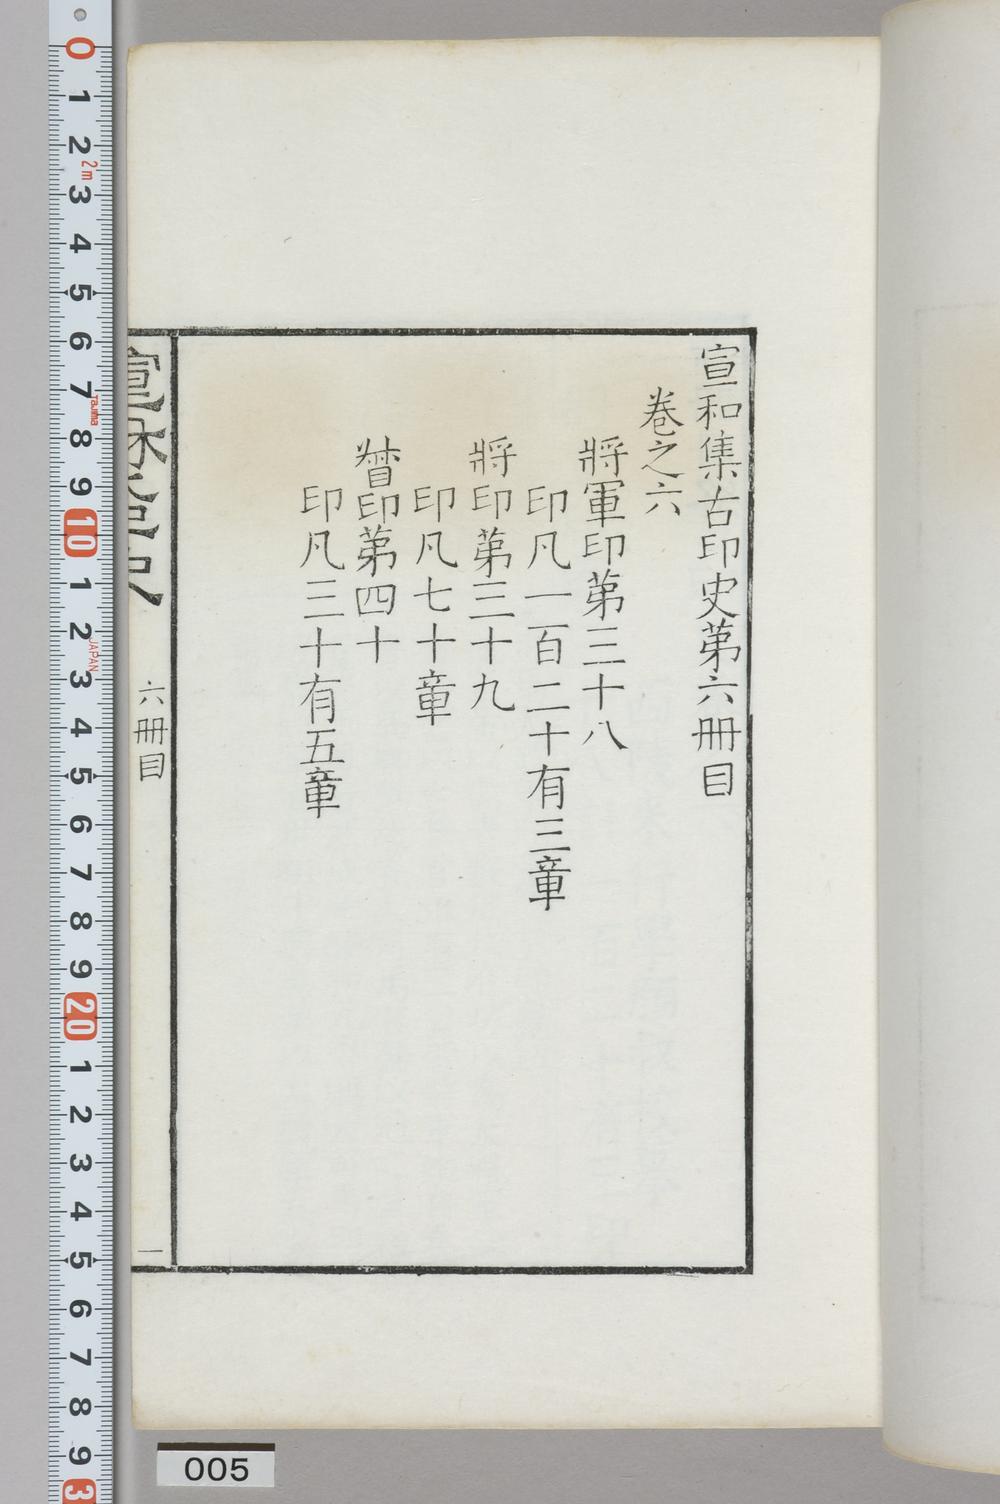 宣和集古印史第六冊目
卷之六
將軍印第三十八
印凡一百二十有三章
將印第三十九
印凡七十章
督印第四十
印凡三十有五章
六冊目
一
005
0 1 2 3 4 5 6 7 8 9 10 1 2 3 4 5 6 7 8 9 20 1 2 3 4 5 6 7 8 9 3
2m
Tajima
JAPAN